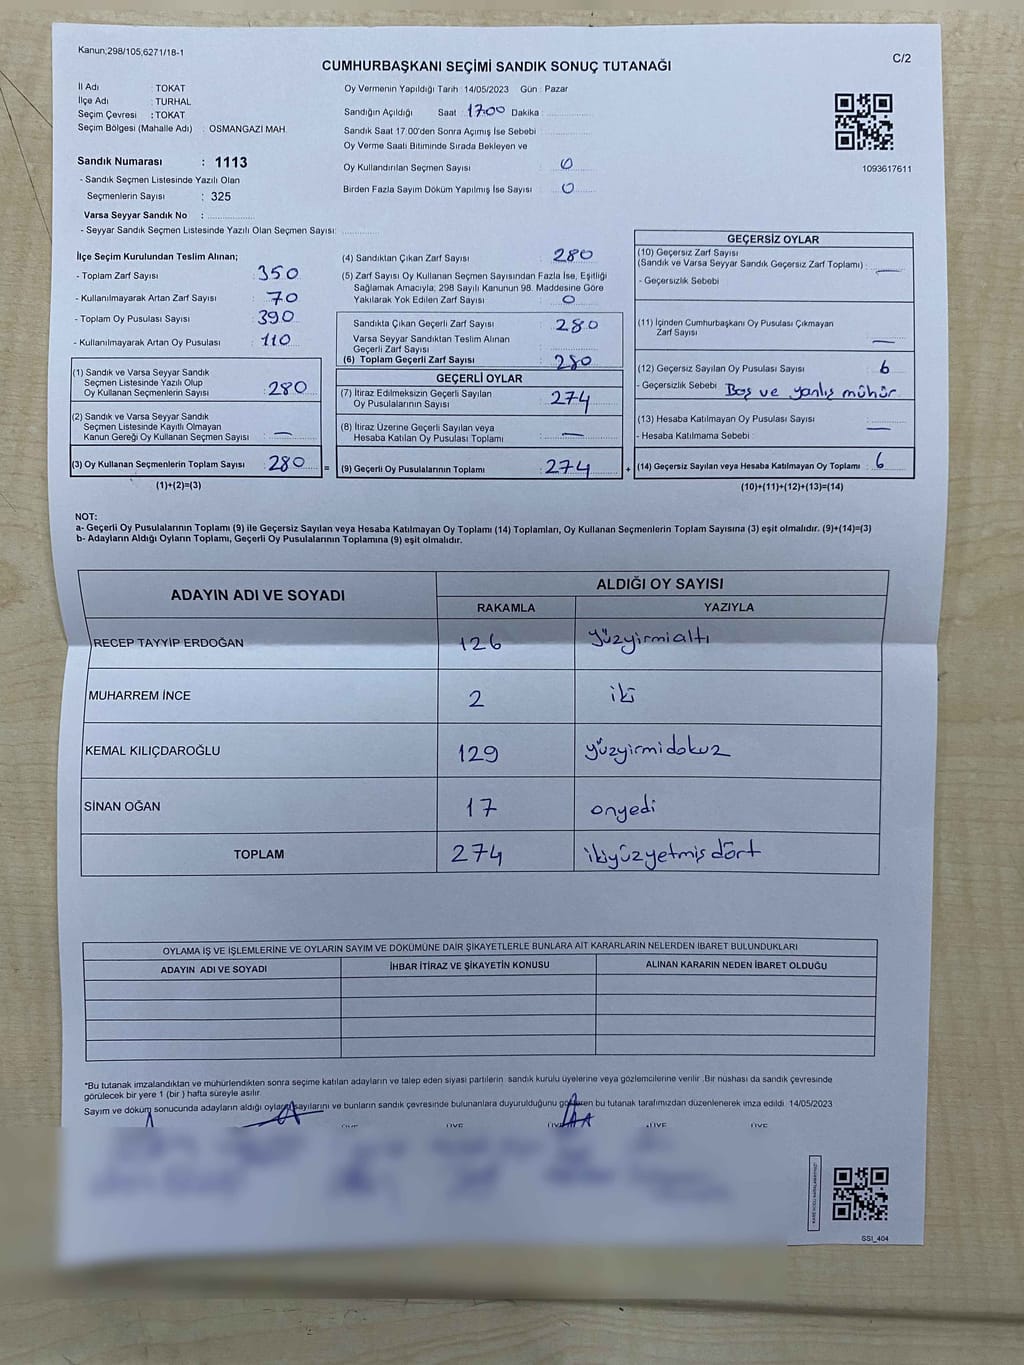 Kanun;298/105,6271/18-1
C/2
CUMHURBAŞKANI SEÇİMİ SANDIK SONUÇ TUTANAĞI
İl Adı : TOKAT
İlçe Adı : TURHAL
Seçim Çevresi : TOKAT
Seçim Bölgesi (Mahalle Adı) : OSMANGAZİ MAH.
Sandık Numarası : 1113
- Sandık Seçmen Listesinde Yazılı Olan
Seçmenlerin Sayısı : 325
Varsa Seyyar Sandık No :
- Seyyar Sandık Seçmen Listesinde Yazılı Olan Seçmen Sayısı:
Oy Vermenin Yapıldığı Tarih : 14/05/2023 Gün : Pazar
Sandığın Açıldığı Saat 17:00 Dakika :
Sandık Saat 17.00'den Sonra Açımış İse Sebebi
Oy Verme Saati Bitiminde Sırada Bekleyen ve
Oy Kullandırılan Seçmen Sayısı : 0
Birden Fazla Sayım Döküm Yapılmış İse Sayısı : 0
1093617611
İlçe Seçim Kurulundan Teslim Alınan;
- Toplam Zarf Sayısı : 350
- Kullanılmayarak Artan Zarf Sayısı : 70
- Toplam Oy Pusulası Sayısı : 390
- Kullanılmayarak Artan Oy Pusulası : 110
(1) Sandık ve Varsa Seyyar Sandık
Seçmen Listesinde Yazılı Olup
Oy Kullanan Seçmenlerin Sayısı : 280
(2) Sandık ve Varsa Seyyar Sandık
Seçmen Listesinde Kayıtlı Olmayan
Kanun Gereği Oy Kullanan Seçmen Sayısı : —
(3) Oy Kullanan Seçmenlerin Toplam Sayısı : 280
(1)+(2)=(3)
=
(4) Sandıktan Çıkan Zarf Sayısı : 280
(5) Zarf Sayısı Oy Kullanan Seçmen Sayısından Fazla İse, Eşitliği
Sağlamak Amacıyla; 298 Sayılı Kanunun 98. Maddesine Göre
Yakılarak Yok Edilen Zarf Sayısı : 0
Sandıkta Çıkan Geçerli Zarf Sayısı : 280
Varsa Seyyar Sandıktan Teslim Alınan
Geçerli Zarf Sayısı :
(6) Toplam Geçerli Zarf Sayısı : 280
GEÇERLİ OYLAR
(7) İtiraz Edilmeksizin Geçerli Sayılan
Oy Pusulalarının Sayısı : 274
(8) İtiraz Üzerine Geçerli Sayılan veya
Hesaba Katılan Oy Pusulası Toplamı : —
(9) Geçerli Oy Pusulalarının Toplamı : 274
+
GEÇERSİZ OYLAR
(10) Geçersiz Zarf Sayısı
(Sandık ve Varsa Seyyar Sandık Geçersiz Zarf Toplamı) : —
- Geçersizlik Sebebi
(11) İçinden Cumhurbaşkanı Oy Pusulası Çıkmayan
Zarf Sayısı : —
(12) Geçersiz Sayılan Oy Pusulası Sayısı : 6
- Geçersizlik Sebebi : Boş ve yanlış mühür
(13) Hesaba Katılmayan Oy Pusulası Sayısı : —
- Hesaba Katılmama Sebebi :
(14) Geçersiz Sayılan veya Hesaba Katılmayan Oy Toplamı : 6
(10)+(11)+(12)+(13)=(14)
NOT:
a- Geçerli Oy Pusulalarının Toplamı (9) ile Geçersiz Sayılan veya Hesaba Katılmayan Oy Toplamı (14) Toplamları, Oy Kullanan Seçmenlerin Toplam Sayısına (3) eşit olmalıdır. (9)+(14)=(3)
b- Adayların Aldığı Oyların Toplamı, Geçerli Oy Pusulalarının Toplamına (9) eşit olmalıdır.
ADAYIN ADI VE SOYADI ALDIĞI OY SAYISI
RAKAMLA YAZIYLA
RECEP TAYYİP ERDOĞAN 126 yüzyirmialtı
MUHARREM İNCE 2 iki
KEMAL KILIÇDAROĞLU 129 yüzyirmidokuz
SİNAN OĞAN 17 onyedi
TOPLAM 274 ikiyüzyetmiş dört
OYLAMA İŞ VE İŞLEMLERİNE VE OYLARIN SAYIM VE DÖKÜMÜNE DAİR ŞİKAYETLERLE BUNLARA AİT KARARLARIN NELERDEN İBARET BULUNDUKLARI
ADAYIN ADI VE SOYADI İHBAR İTİRAZ VE ŞİKAYETİN KONUSU ALINAN KARARIN NEDEN İBARET OLDUĞU
*Bu tutanak imzalandıktan ve mühürlendikten sonra seçime katılan adayların ve talep eden siyasi partilerin sandık kurulu üyelerine veya gözlemcilerine verilir .Bir nüshası da sandık çevresinde
görülecek bir yere 1 (bir ) hafta süreyle asılır.
Sayım ve döküm sonucunda adayların aldığı oyların sayılarını ve bunların sandık çevresinde bulunanlara duyurulduğunu gösteren bu tutanak tarafımızdan düzenlenerek imza edildi. 14/05/2023
ÜYE ÜYE ÜYE ÜYE ÜYE
SSI_404